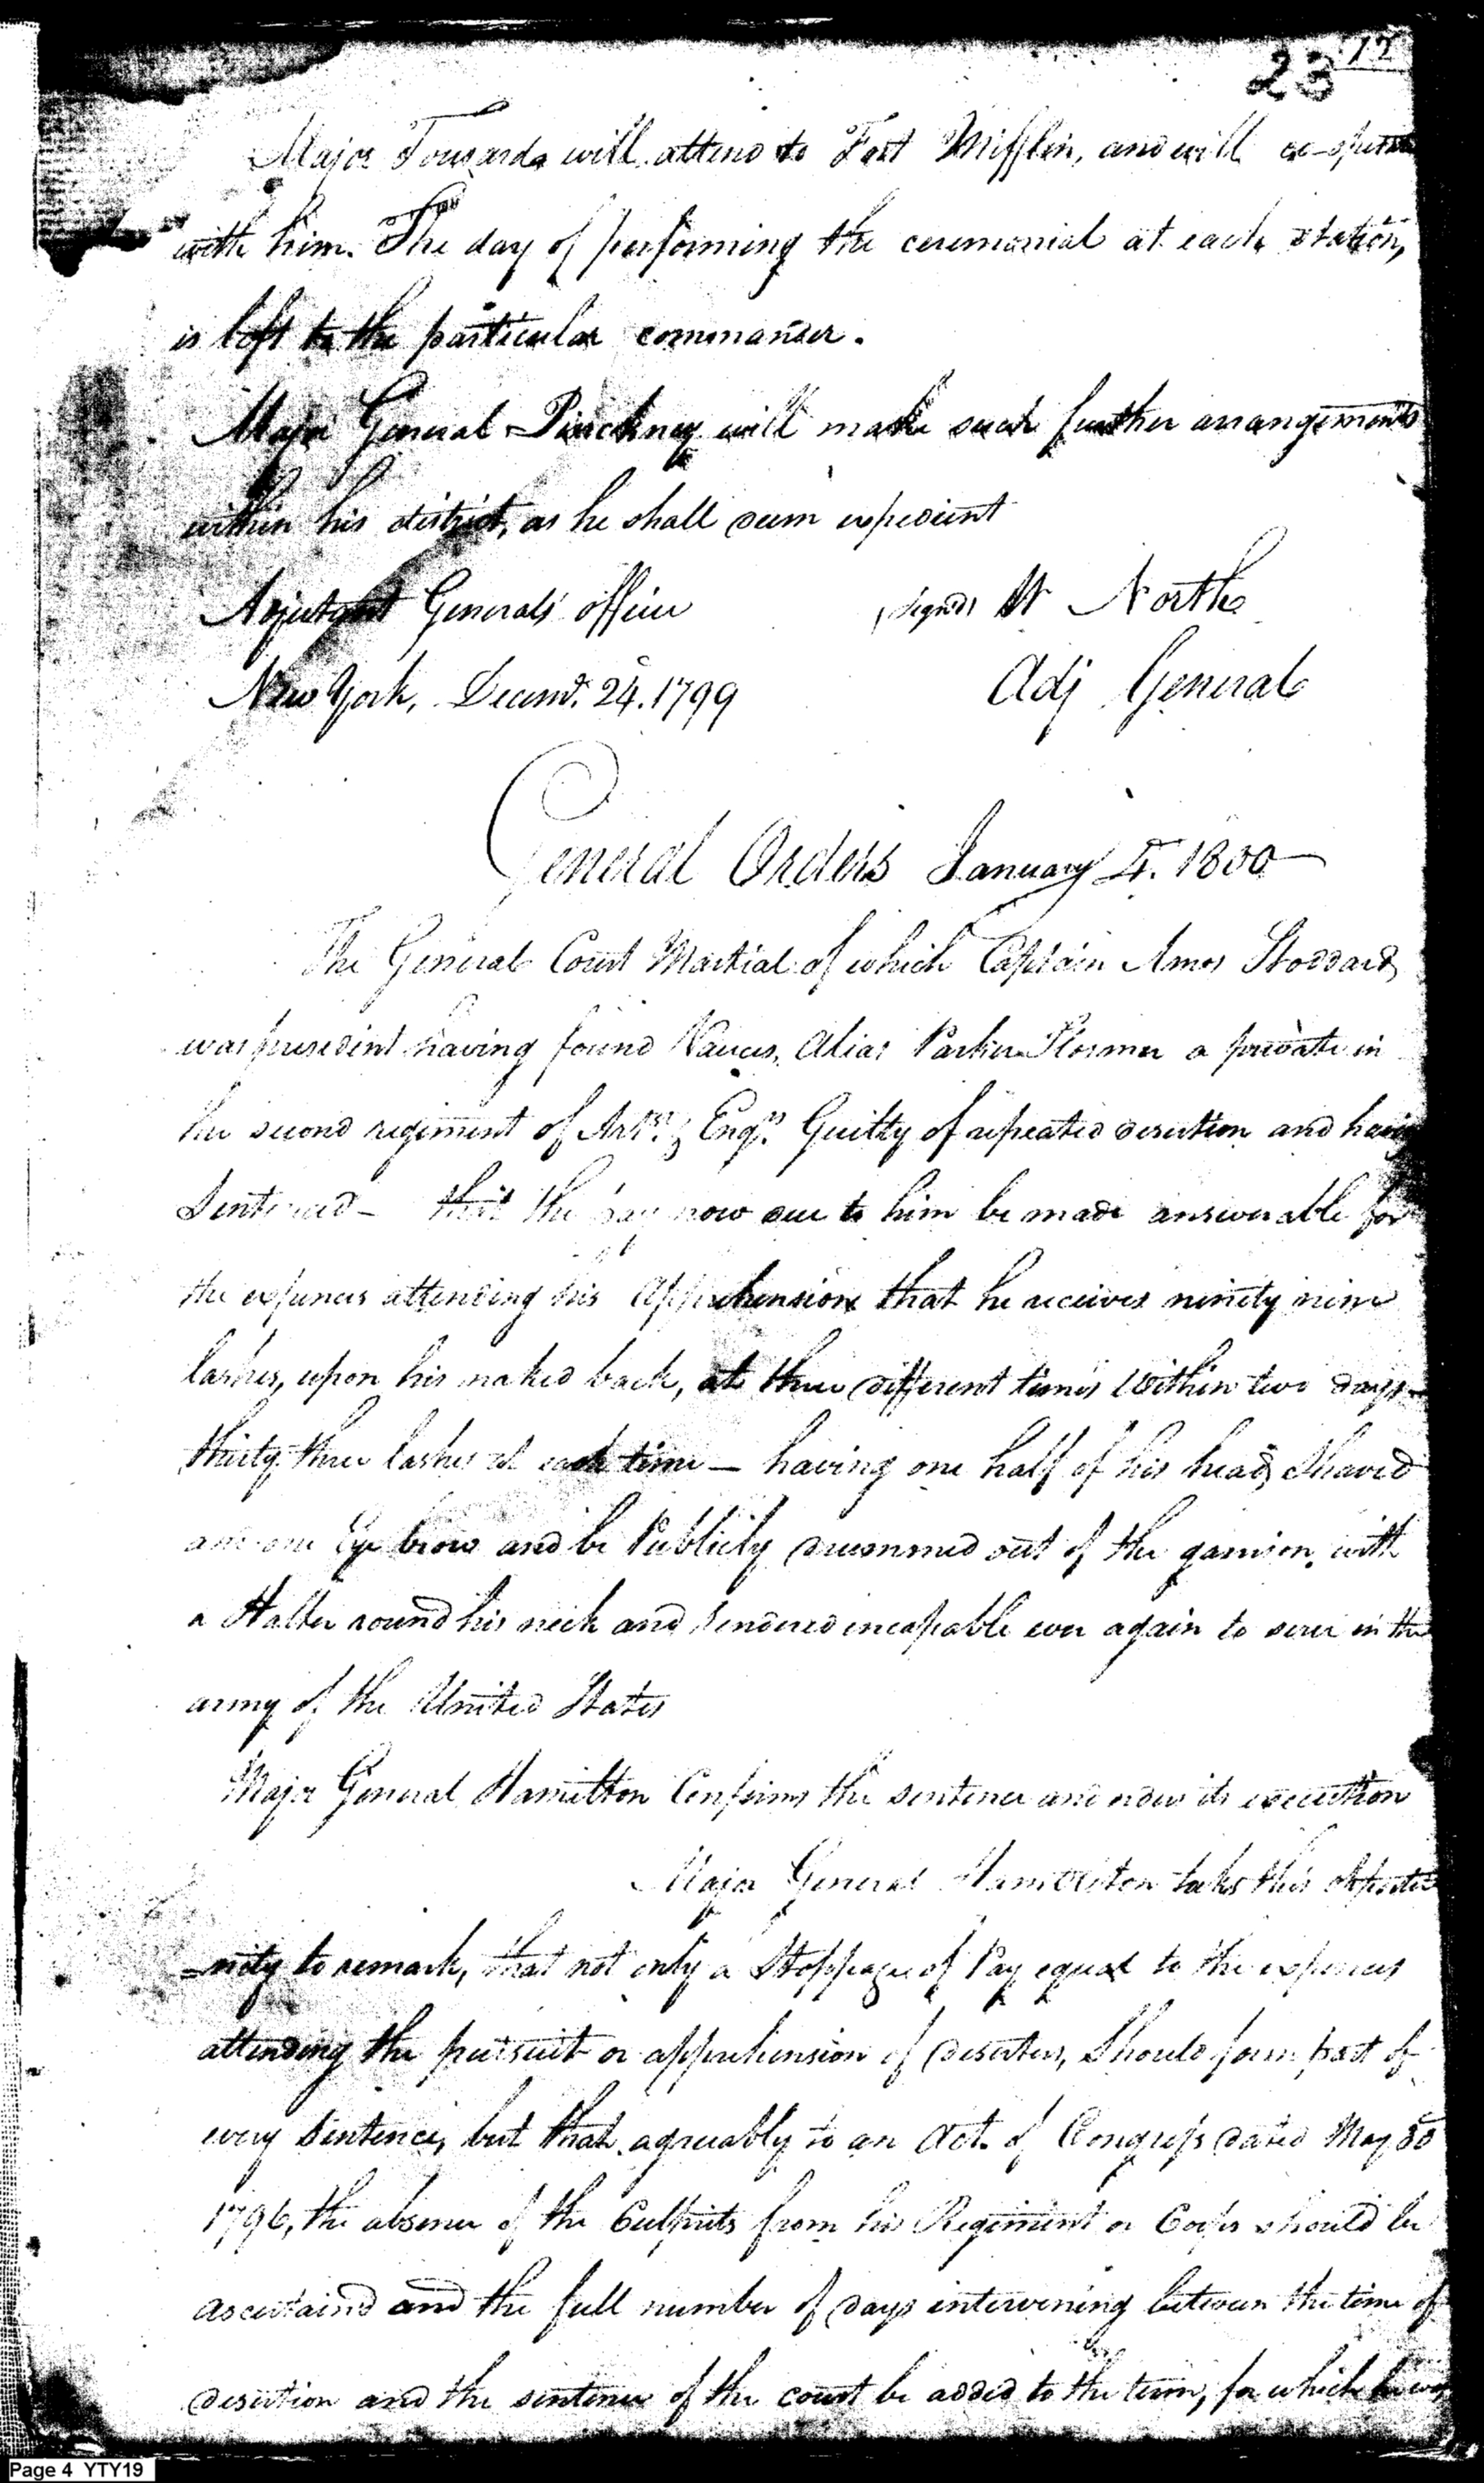 23 12
Major Tousards will attend to Fort Mifflin, and will co-operate
with him. The day of performing the ceremonial at each station,
is left to the particular commander.
Major General Pinckney will make such further arrangements
within his district, as he shall deem expedient
Adjutant Generals office (signed) W North
New York, Decemr. 24. 1799 Adj General
General Orders January 4. 1800
The General Court Martial of which Captain Amos Stoddard
was president having found Alias Parker a private in
the second regiment of Artrs. & Engrs. Guilty of repeated desertion and having
Sentenced - that the pay now due to him be made answerable for
the expences attending his apprehension that he receives ninety nine
lashes, upon his naked back, at three different times within two days
thirty three lashes at each time - having one half of his head Shaved
and one Eye brow and be Publicly drummed out of the garrison with
a Halter round his neck and rendered incapable ever again to serve in the
army of the United States
Major General Hamilton Confirms the sentence and orders its execution
Major General Hamilton takes this opportu
=nity to remark, that not only a Stoppage of Pay equal to the expences
attending the pursuit or apprehension of deserters, Should form part of
every Sentence, but that agreeably to an Act of Congress dated May 30
1796, the absence of the Culprits from his Regiment or Corps should be
ascertaind and the full number of days intervening between the time of
desertion and the sentence of the court be added to the term, for which he was
Page 4 YTY19